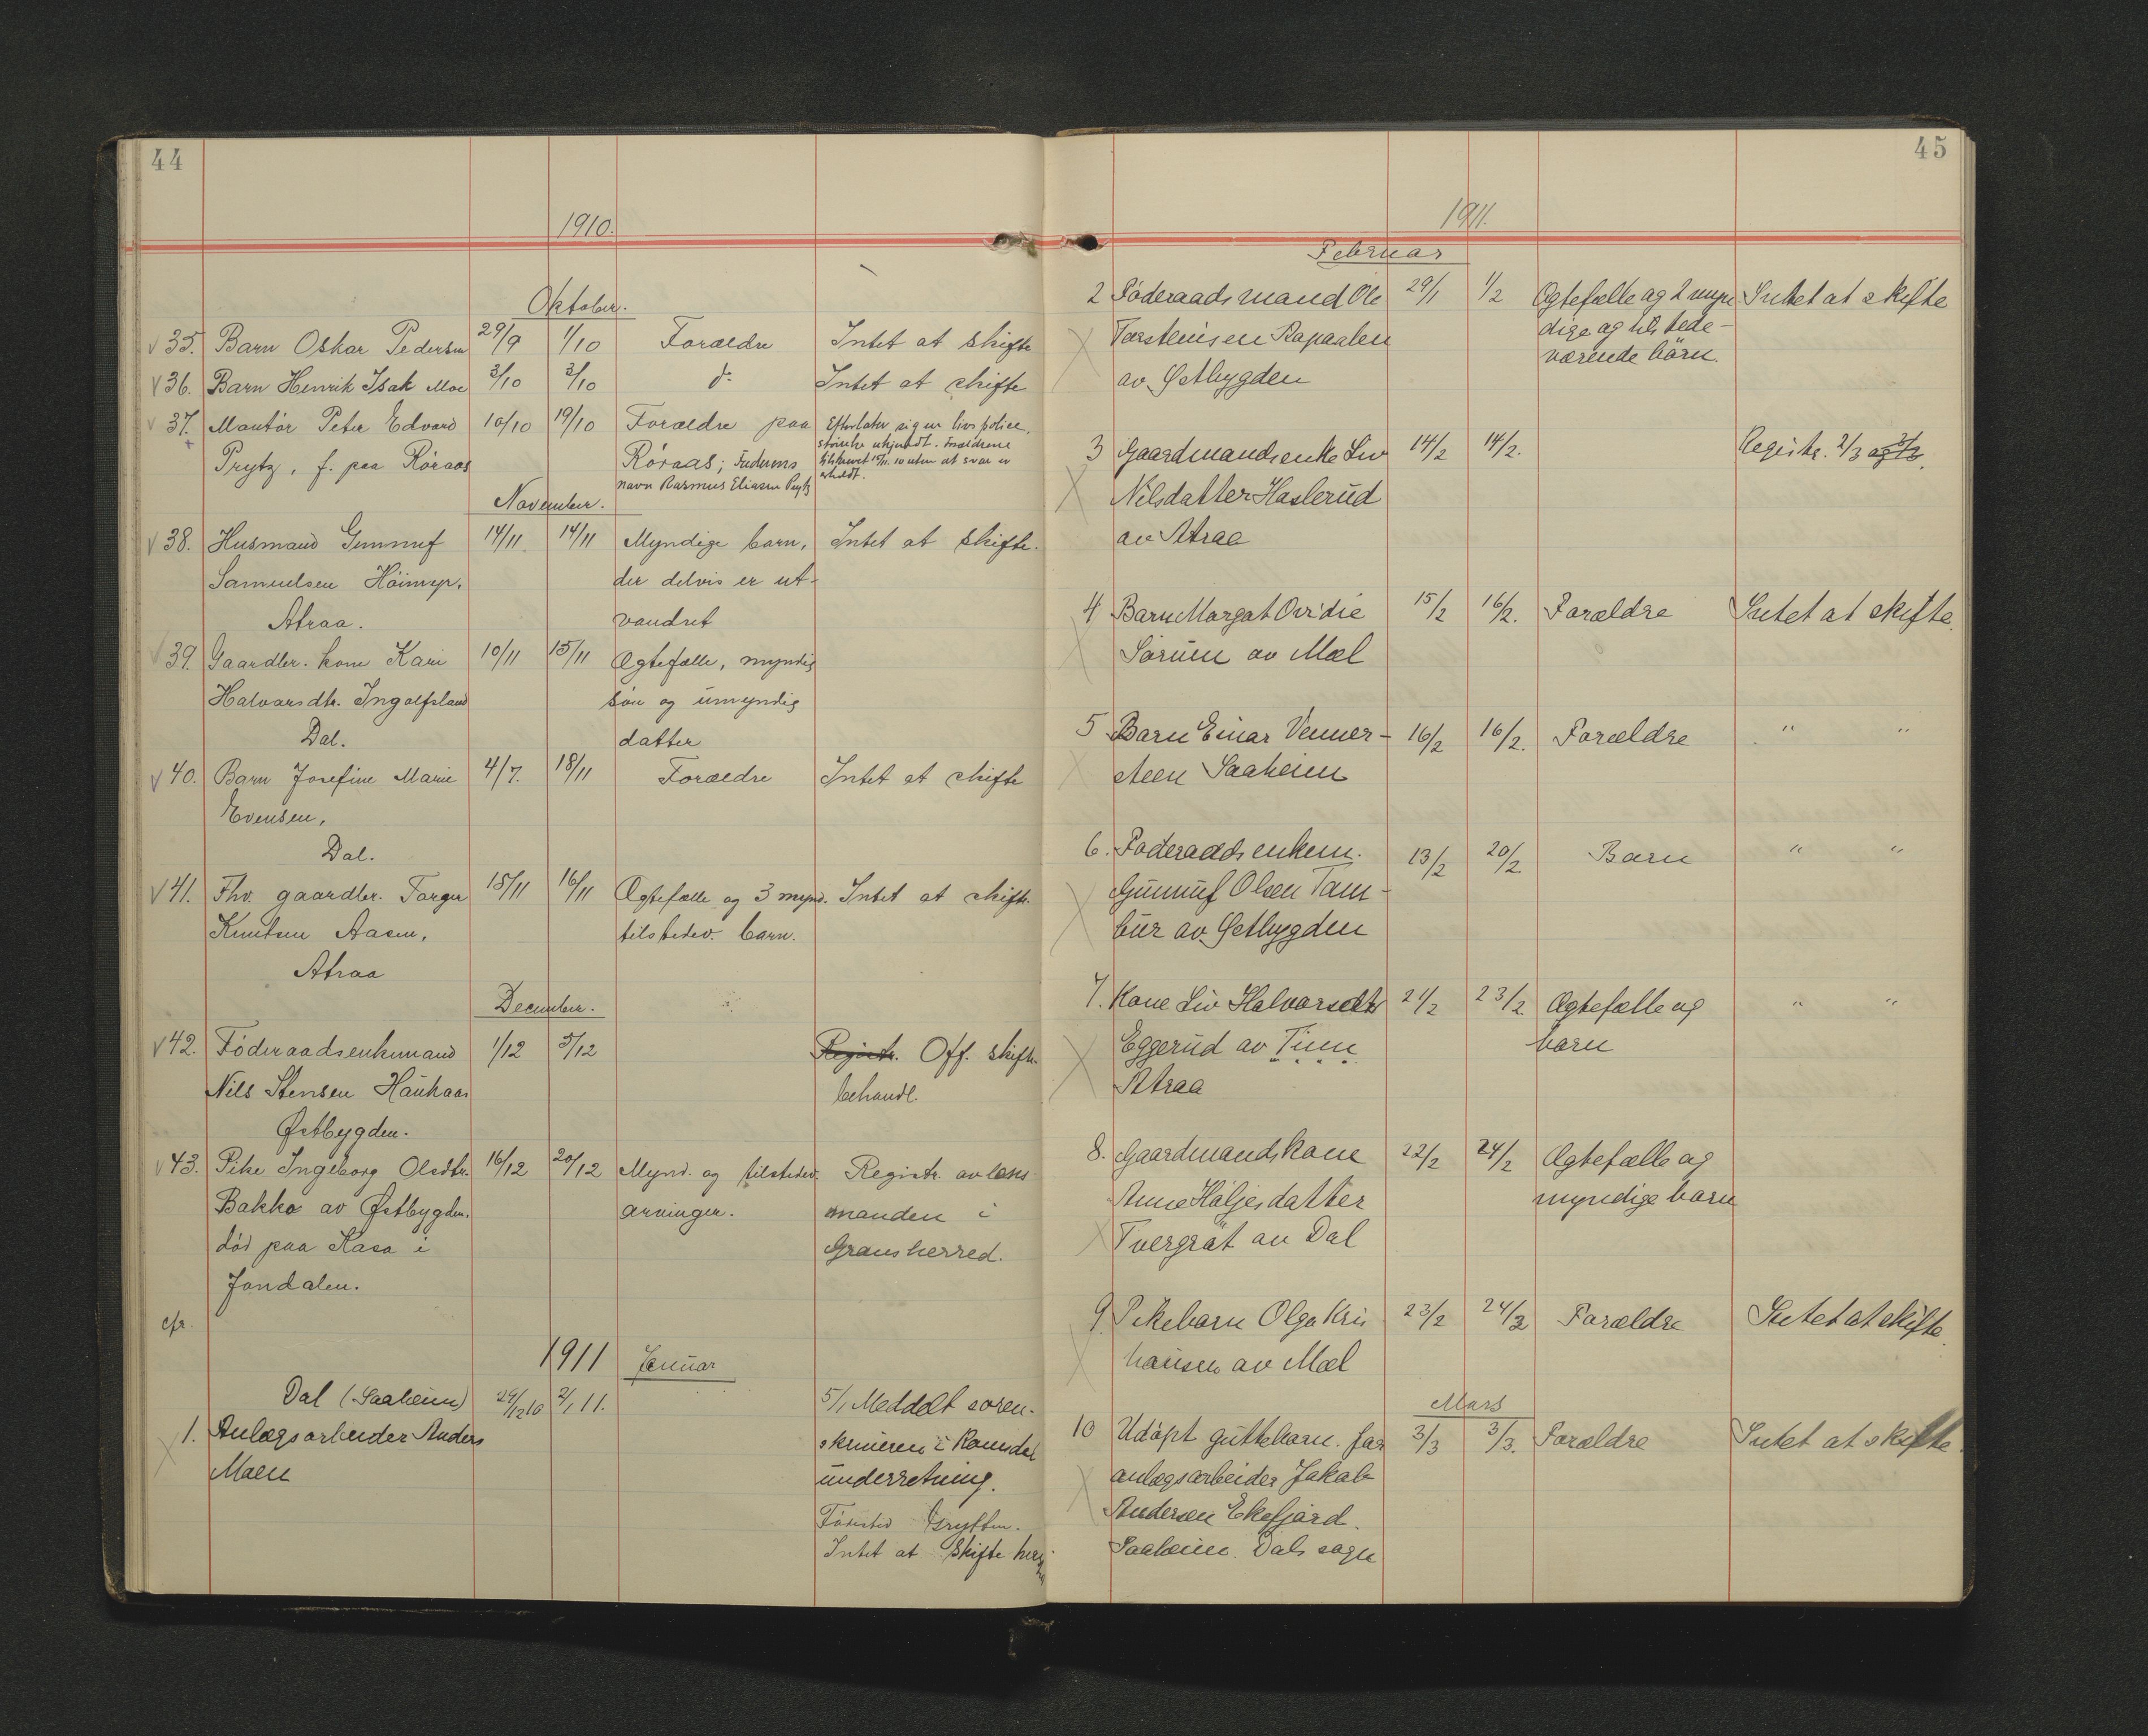 44
1910.
Oktober.
35. Barn Oskar Pedersen 29/9 1/10 Forældre Intet at skifte
36. Barn Henrik Isak Moe 3/10 3/10 do Intet at skifte
37. Montör Peter Edvard 10/10 19/10 Forældre paa Efterlater sig en livspolice,
Prytz, f. paa Röraas Röraas; Faderens störrelse ukjendt. Forældrene
navn Rasmus Eliasen Prytz tilskrevet 15/11. 10 uten at svar er
erholdt.
November.
38. Husmand Gunnuf 14/11 14/11 Myndige barn, Intet at skifte.
Samuelsen Höimyr, der delvis er ut-
Atraa. vandret
39. Gaardbr. kone Kari 10/11 15/11 Ægtefælle, myndig
Halvorsdtr. Ingolfsland sön og umyndig
Dal. datter
40. Barn Josefine Marie 4/7. 18/11 Forældre Intet at skifte
Evensen,
Dal.
41. Fhv. gaardbr. Torger 15/11 16/11 Ægtefælle og 3 mynd. Intet at skifte.
Knutsen Aasen, tilstedev. barn.
Atraa
December.
42. Föderaadsenkemand 1/12 5/12 Registr. Off. skifte-
Nils Stensen Haukaas behandl.
Østbygden.
43. Pike Ingeborg Olsdtr. 16/12 20/12 Mynd. og tilstedev. Registr. av lens-
Bakko av Østbygden. arvinger. manden i
död paa Kasa i Gransherred.
Jondalen.
cfr.
1911 Januar
Dal (Saaheim) 29/12 10 2/1 11. 5/1 Meddelt soren-
1. Anlægsarbeider Anders skriveren i Romsdal
Moen underretning.
Födested Grytten.
Intet at skifte her
45
1911.
Februar
2 Föderaadsmand Ole 29/1 1/2 Ægtefælle og 2 myn Intet at skifte
Torsteinsen Rapaalen dige og tilstede-
av Østbygden værende börn.
3 Gaardmandsenke Liv 14/2 14/2. Registr. 2/3 og 3/3.
Nilsdatter Haslerud
av Atraa
4 Barn Margot Ovidie 15/2 16/2. Forældre Intet at skifte.
Sörum av Mæl
5 Barn Einar Venner- 16/2 16/2. Forældre " "
steen Saaheim
6. Föderaadsenkem. 13/2 20/2. Barn " "
Gunnuf Olsen Tam-
bur av Østbygden
7. Kone Liv Halvorsdtr 21/2 23/2 Ægtefælle og " "
Eggerud av Tinn barn
Atraa
8. Gaardmandskone 22/2 24/2 Ægtefælle og
Anne Höljesdatter myndige barn
Tvergröt av Dal
9. Pikebarn Olga Kris 23/2 24/2 Forældre Intet at skifte
hansen av Mæl
Mars
10 Udöpt guttebarn. far 3/3 3/3. Forældre Intet at skifte.
anlægsarbeider Jakob
Andersen Ekefjärd.
Saaheim. Dals sogn